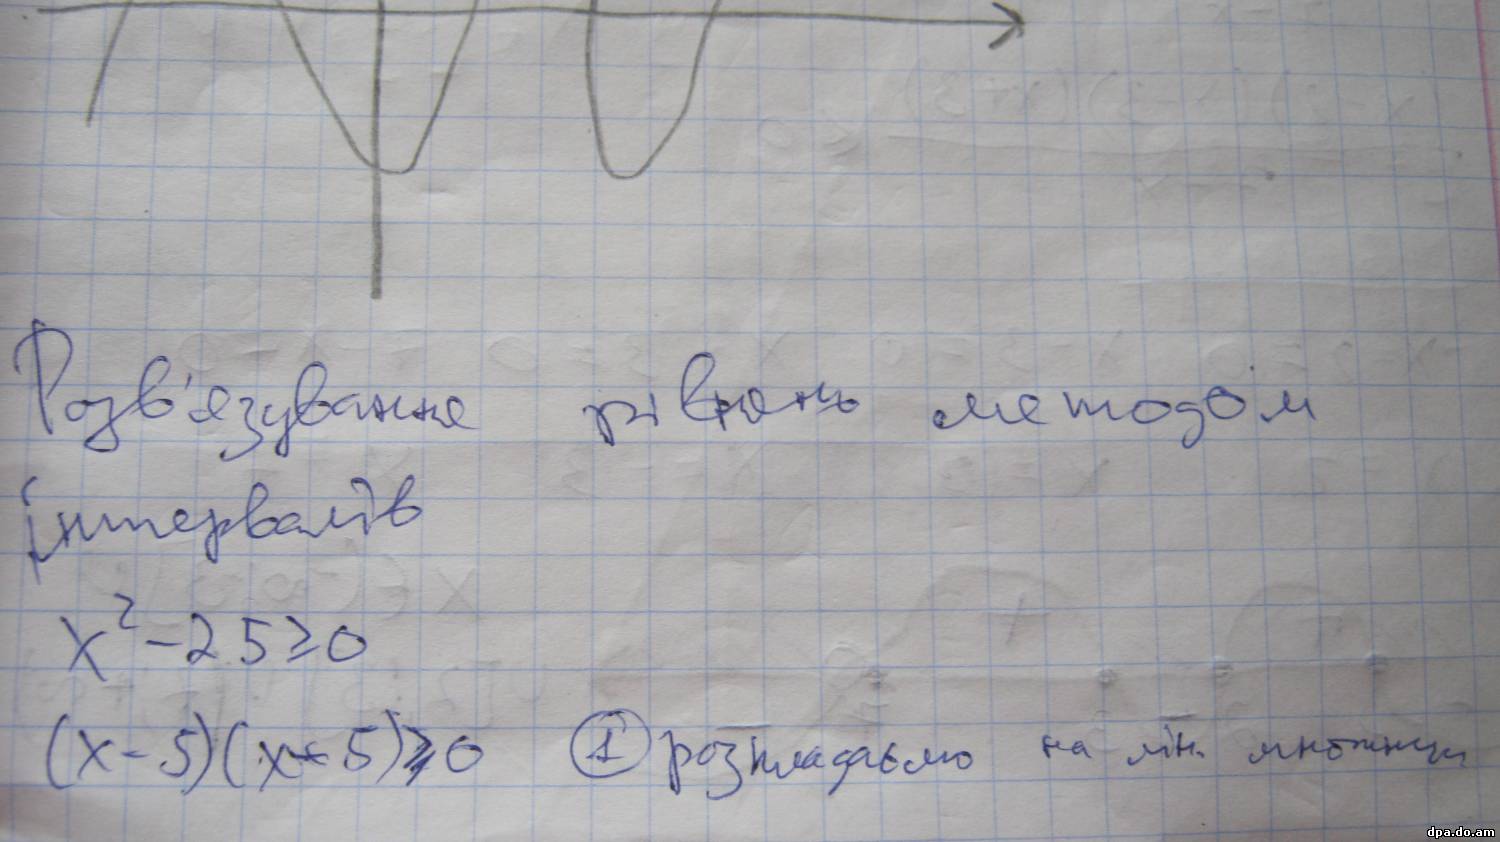 Розв'язування рівнянь методом
інтервалів
x²-25≥0
(x-5)(x+5)≥0 ① розкладаємо на лін. множники
dpa.do.am